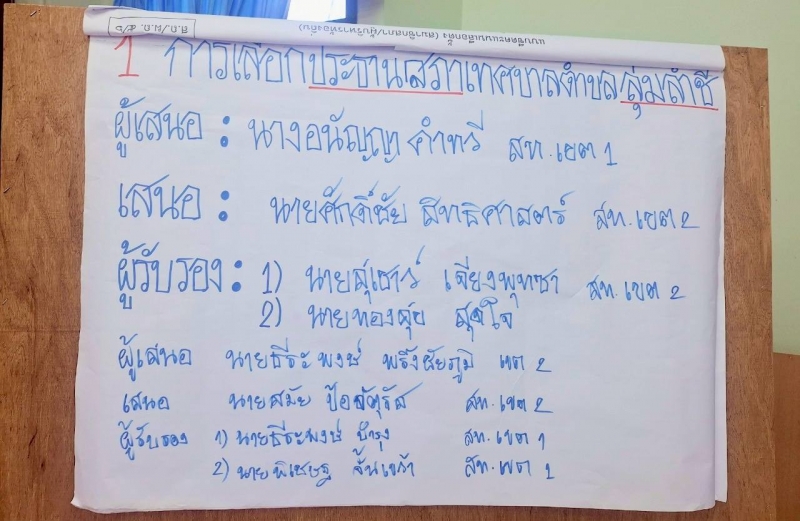 1 การเลือกประธานสภาเทศบาลตำบลลุ่มลำชี
ผู้เสนอ : นางอนัญญา คำทวี สท.เขต 1
เสนอ : นายศักดิ์ชัย สิทธิศาสตร์ สท.เขต 2
ผู้รับรอง : 1) นายสุเชาว์ เจียงพุทซา สท.เขต 2
2) นายทองสุข สุขใจ
ผู้เสนอ นายธีระพงษ์ พรึงชัยภูมิ เขต 2
เสนอ นายสมัย ป้อจัตุรัส สท.เขต 2
ผู้รับรอง 1) นายธีระพงษ์ บำรุง สท.เขต 1
2) นายพิเชษฐ สท.เขต 1